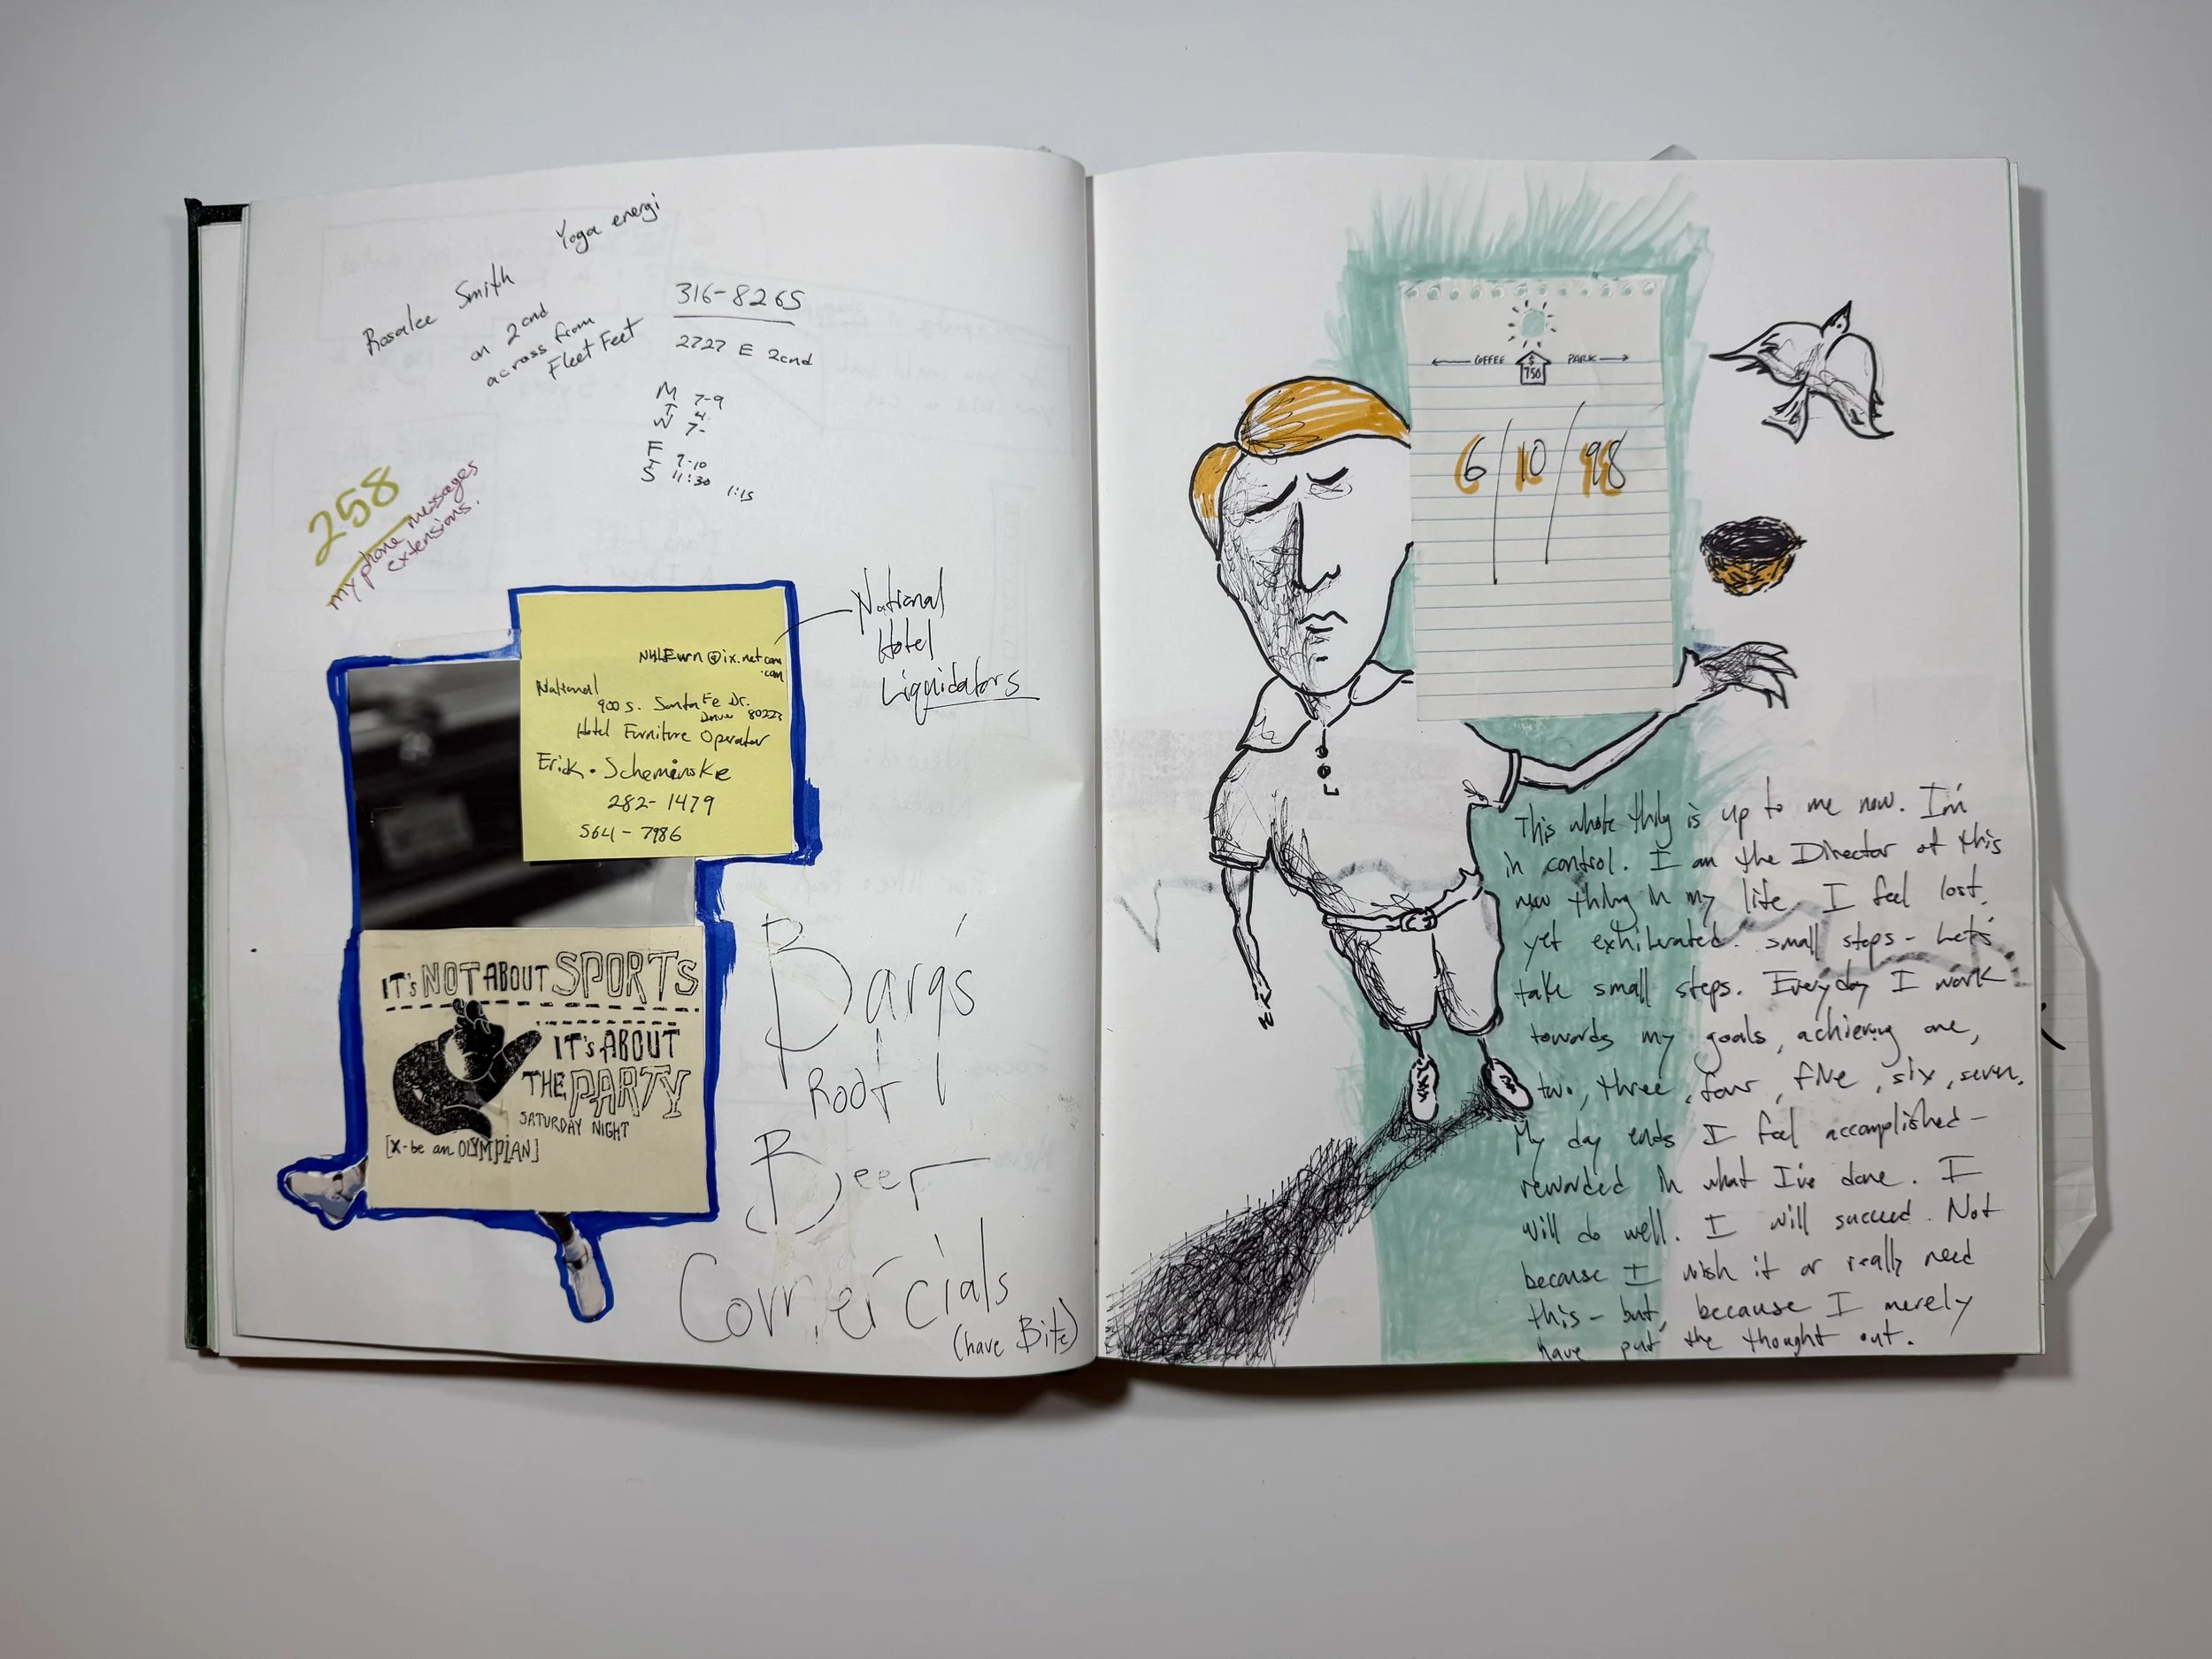 Yoga energi
Rosalee Smith
on 2cnd
across from
Fleet Feet
316-8265
2727 E 2cnd
M 7-9
T 4
W 7-
F
T 9-10
S 11:30 1:15
258
my phone messages
extensions.
NHLEwrn@ix.net.com
.com
National
900 S. Santa Fe Dr.
Denver 80223
Hotel Furniture Operator
Erick. Scheminske
282-1479
564-7986
National
Hotel
Liquidators
IT'S NOT ABOUT SPORTS
IT'S ABOUT
THE PARTY
SATURDAY NIGHT
[X-be an OLYMPIAN]
Barq's
Root
Beer
Commercials
(have Bite)
COFFEE $ PARK
750
6/10/98
This whole thing is up to me now. I'm
in control. I am the Director of this
new thing in my life. I feel lost,
yet exhilerated. small steps - Let's
take small steps. Everyday I work
towards my goals, achieving one,
two, three, four, five, six, seven.
My day ends I feel accomplished -
rewarded in what I've done. I
will do well. I will succeed. Not
because I wish it or really need
this - but, because I merely
have put the thought out.